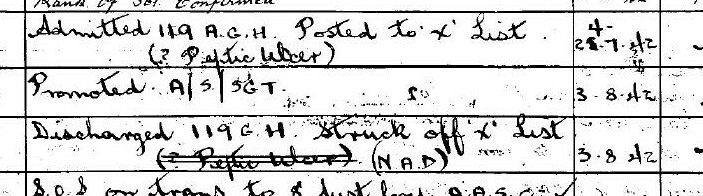 Rank of Sgt. Confirmed
Admitted 119 A.G.H. Posted to 'X' List. 4-
(? Peptic Ulcer) 28.7.42
Promoted A/S/SGT. 3-8-42
Discharged 119 G.H. Struck off 'X' List
(? Peptic Ulcer) (NAD) 3-8-42
S.O.S on trans to 8 Aust